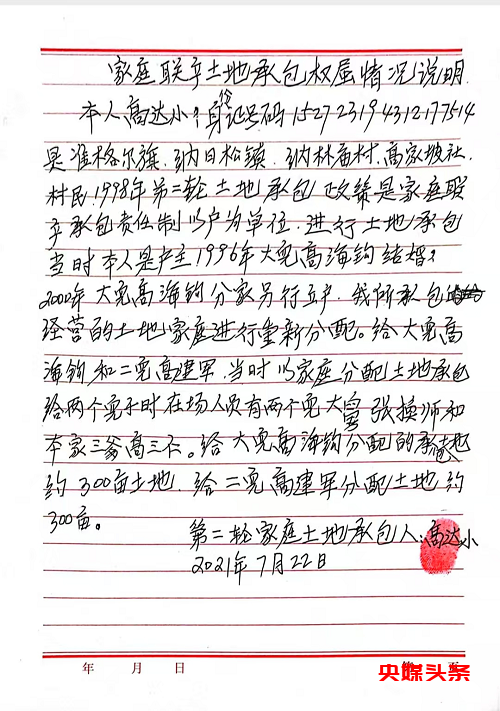 家庭联产土地承包权属情况说明
本人高达小,身份证号码152723194312177514
是准格尔旗.纳日松镇.纳林庙村.高家坡社.
村民,1998年第二轮土地承包政策是家庭联
产承包责任制以户为单位.进行土地承包
当时本人是户主1996年大儿高海钩结婚,
2000年大儿高海钩分家另行立户.我所承包
经营的土地家庭进行重新分配。给大儿高
海钩和二儿高建军.当时以家庭分配土地承包
给两个儿子时在场人员有两个儿大舅张换师和
本家三爹高三不。给大儿高海钩分配的承包地
约300亩土地.给二儿高建军分配土地约
300亩。
第二轮家庭土地承包人:高达小
2021年7月22日
年 月 日 第 页
央媒头条